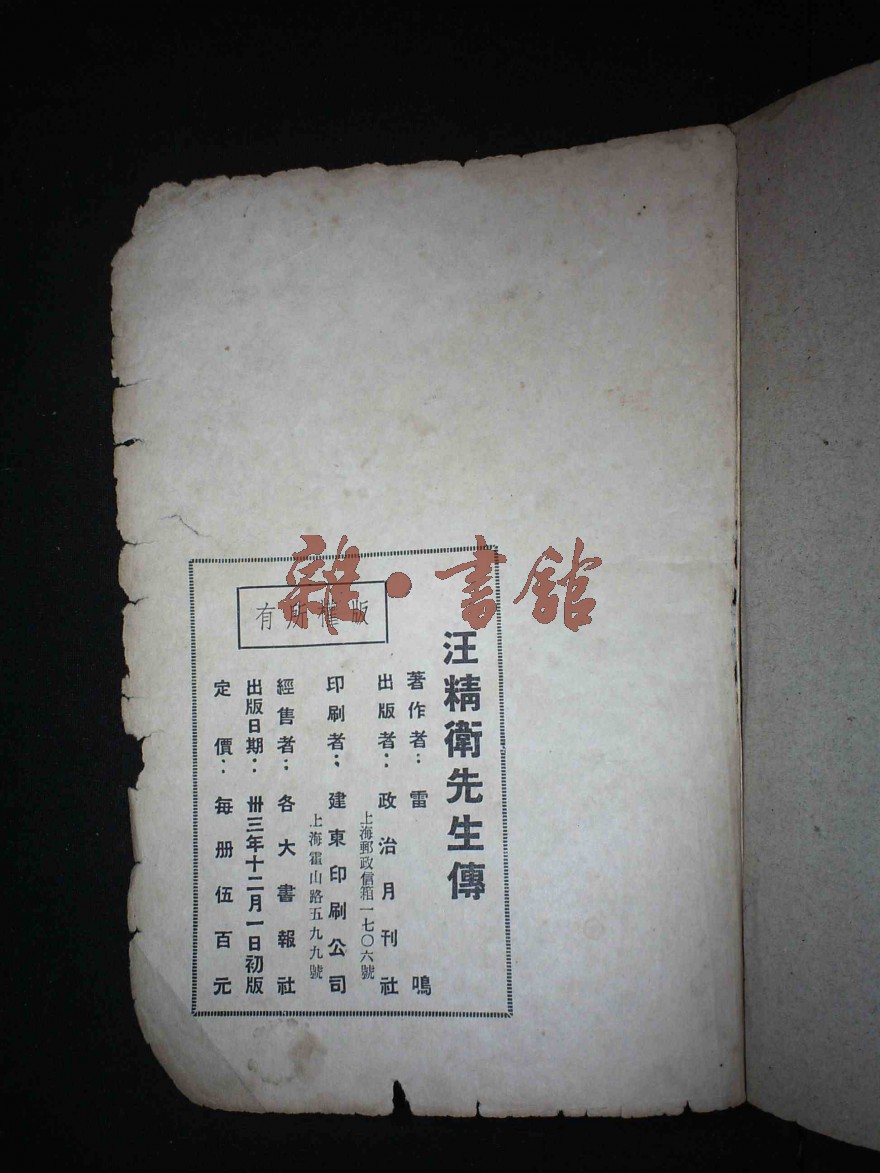 雜·書館
汪精衛先生傳
著作者：雷鳴
出版者：政治月刊社
上海郵政信箱一七〇六號
印刷者：建東印刷公司
上海霍山路五九九號
經售者：各大書報社
出版日期：卅三年十二月一日初版
定價：每册伍百元
版權所有